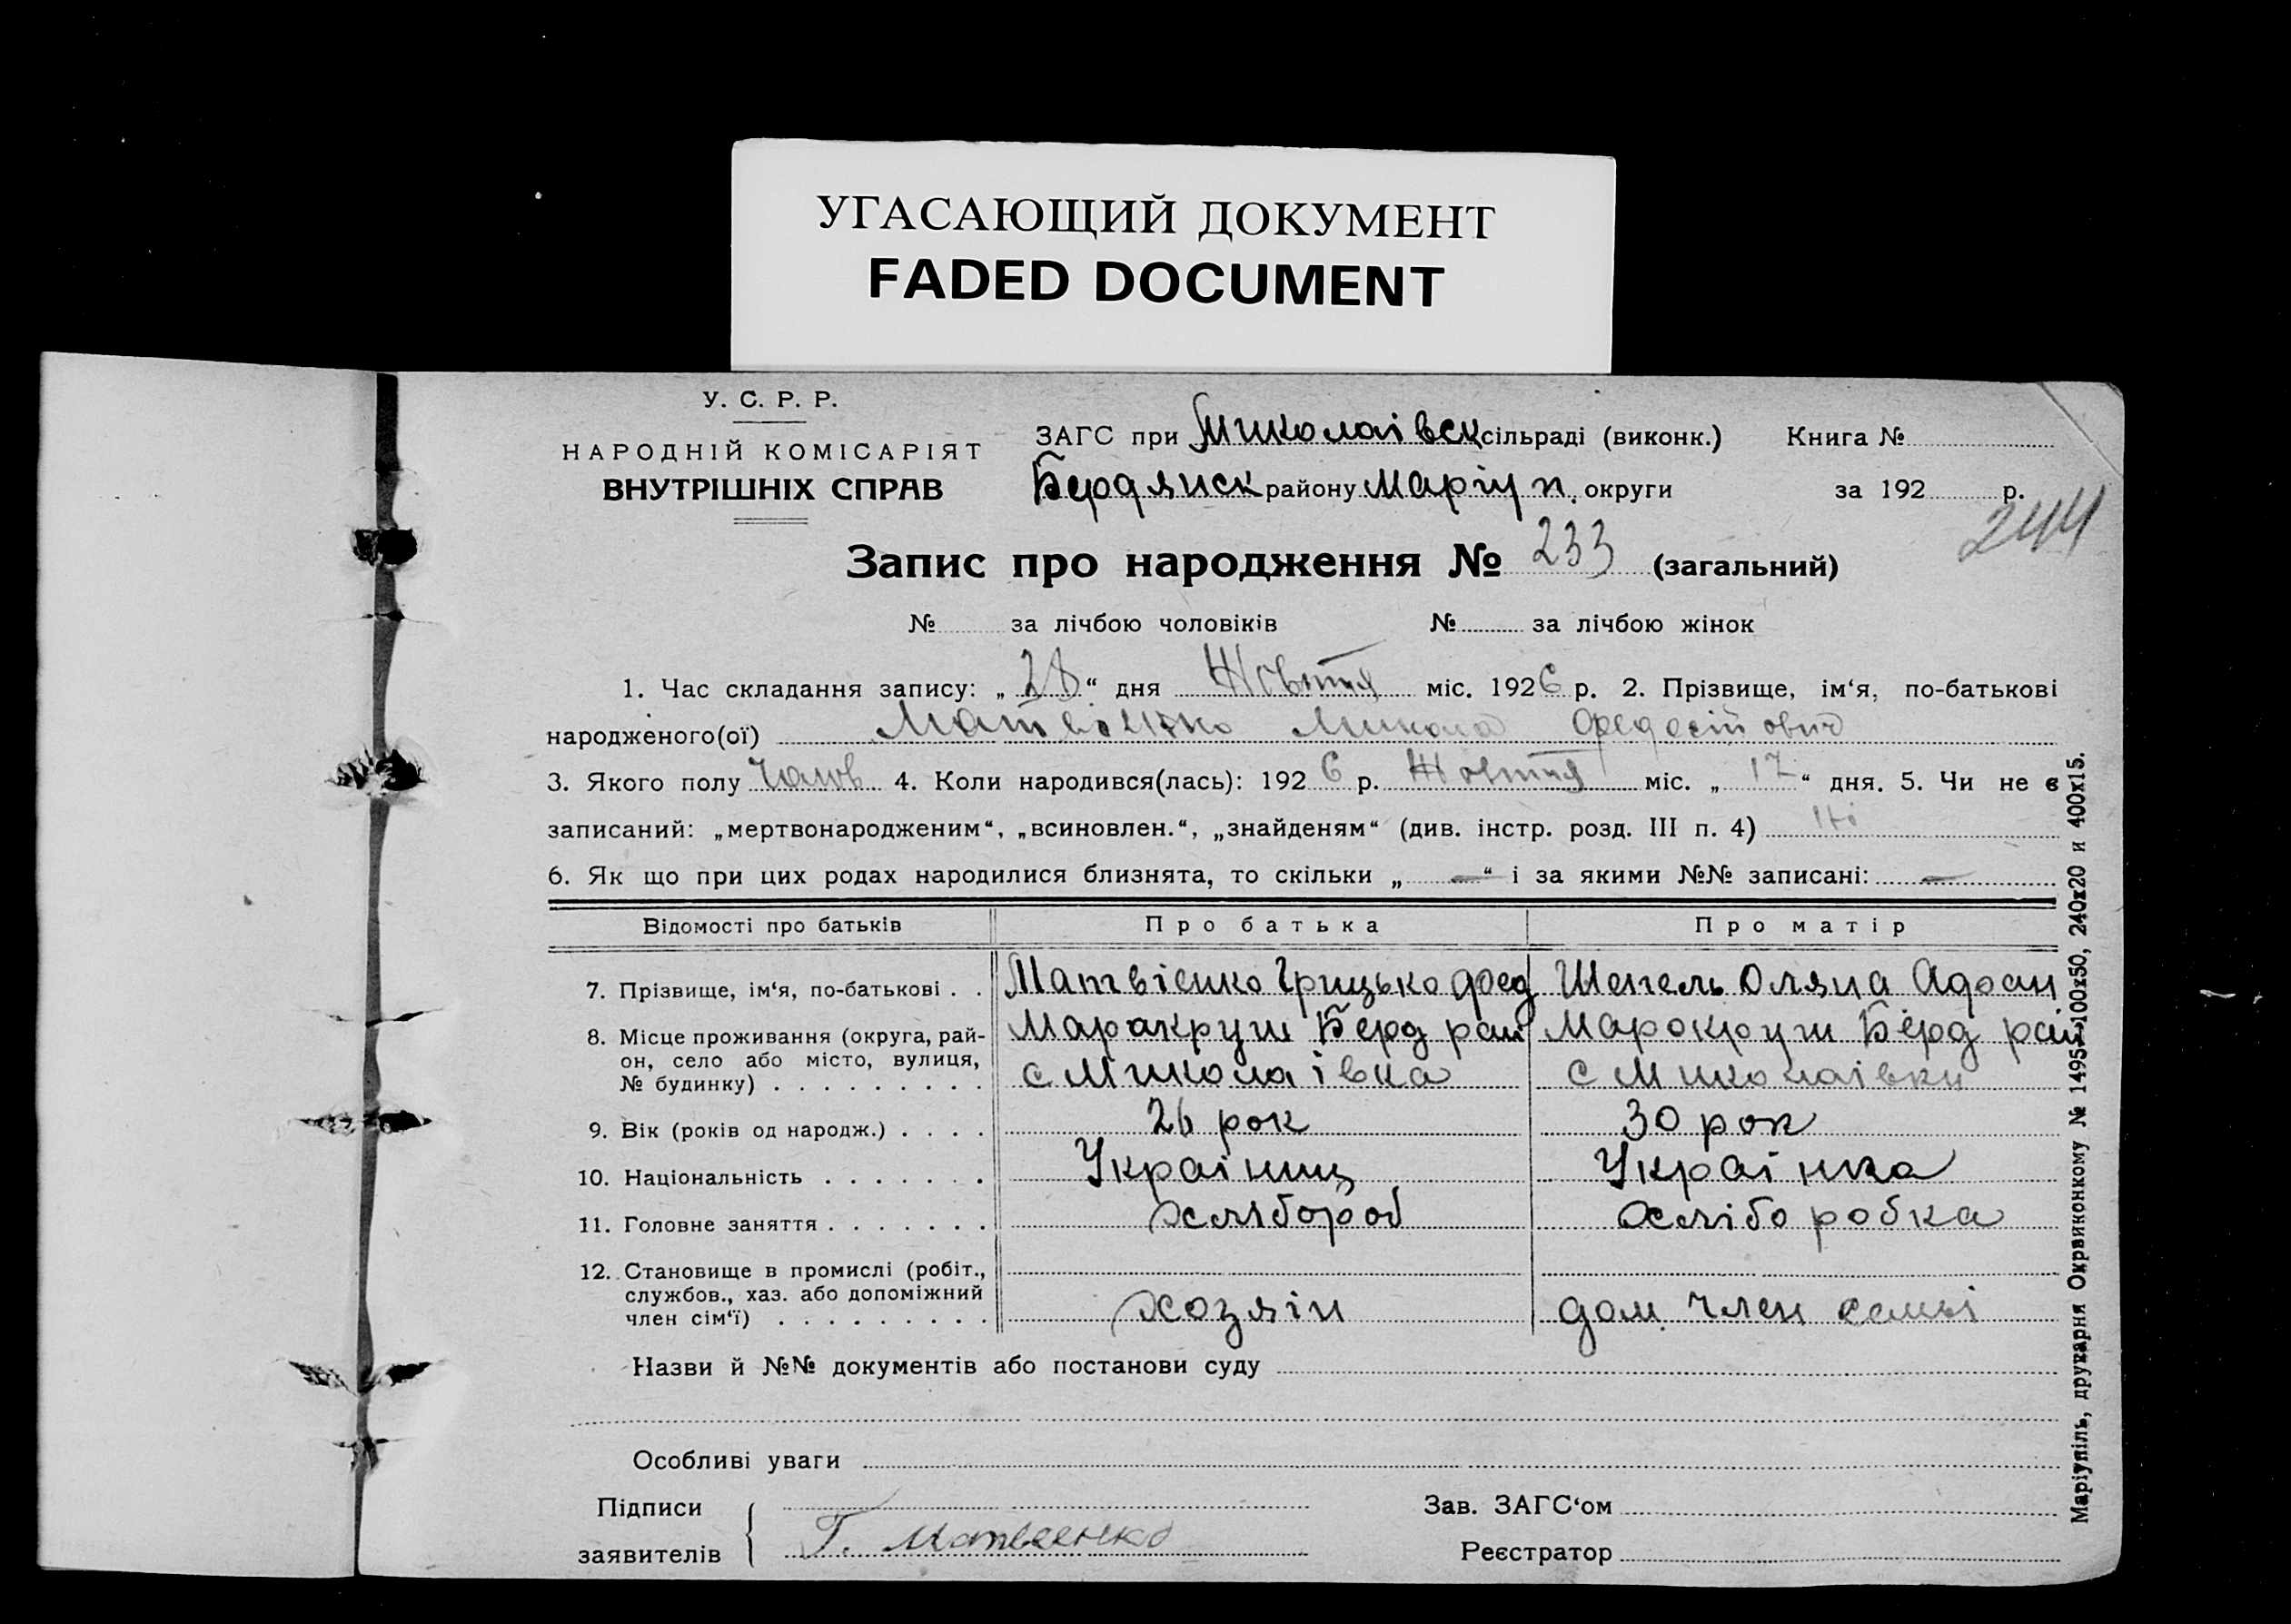 УГАСАЮЩИЙ ДОКУМЕНТ
FADED DOCUMENT
У. С. Р. Р.
НАРОДНІЙ КОМІСАРІЯТ
ВНУТРІШНІХ СПРАВ
ЗАГС при Миколаівск сільраді (виконк.) Книга №
Бердянск району Маріуп. округи за 192 р.
244
Запис про народження № 233 (загальний)
№ за лічбою чоловіків № за лічбою жінок
1. Час складання запису: „28“ дня Жовтня міс. 1926 р. 2. Прізвище, ім‘я, по-батькові
народженого(ої) Матвієнко Микола
3. Якого полу Чолов 4. Коли народився(лась): 1926 р. Жовтня міс. „17“ дня. 5. Чи не є
записаний: „мертвонародженим“, „всиновлен.“, „знайденям“ (див. інстр. розд. III п. 4) Ні
6. Як що при цих родах народилися близнята, то скільки „—“ і за якими №№ записані: —
Відомості про батьків Про батька Про матір
7. Прізвище, ім‘я, по-батькові . . Матвієнко Грицько Фед Шепель Оляна Адоан
8. Місце проживання (округа, рай- Маракруги Берд рай Марокруги Берд рай
он, село або місто, вулиця,
№ будинку) . . . . . . . . . с Миколаівка с Миколаівки
9. Вік (років од народж.) . . . . 26 рок 30 рок
10. Національність . . . . . . . Украінец Украінка
11. Головне заняття . . . . . . . Хлібороб Хліборобка
12. Становище в промислі (робіт.,
службов., хаз. або допоміжний
член сім‘ї) . . . . . . . . . хозяін дом. член семьі
Назви й №№ документів або постанови суду
Особливі уваги
Підписи Зав. ЗАГС‘ом
заявителів Г. Матвеенко Реєстратор
Маріупіль, друкарня Окрвиконкому № 1495-100х50, 240х20 и 400х15.